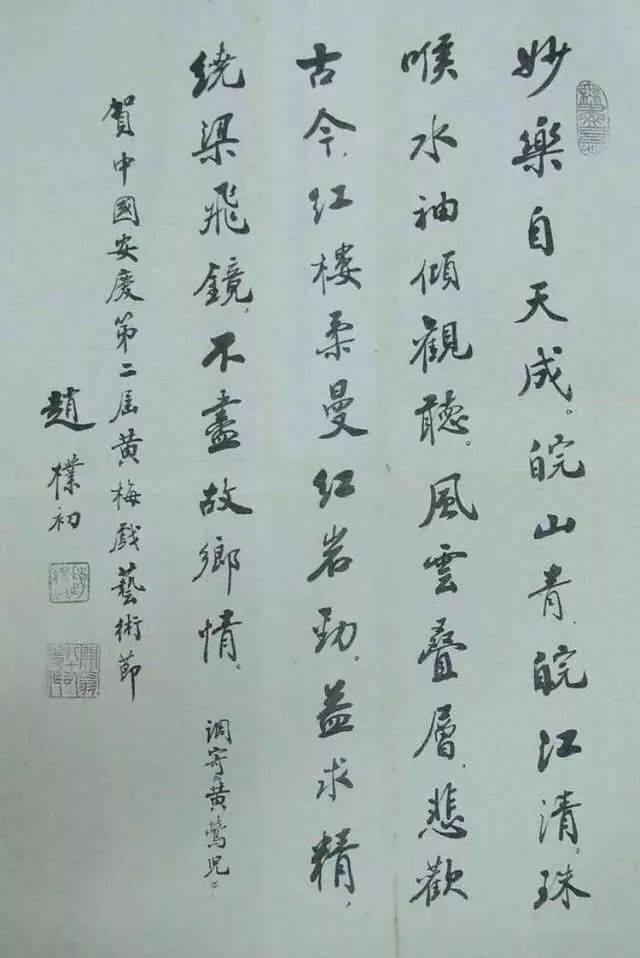 妙樂自天成。皖山青，皖江清。珠
喉水袖傾觀聽。風雲疊層，悲歡
古今，红樓柔曼红岩勁。益求精，
绕梁飛鏡，不盡故鄉情。
調寄黄鶯兒
賀中國安慶第二届黄梅戲藝術節
趙樸初